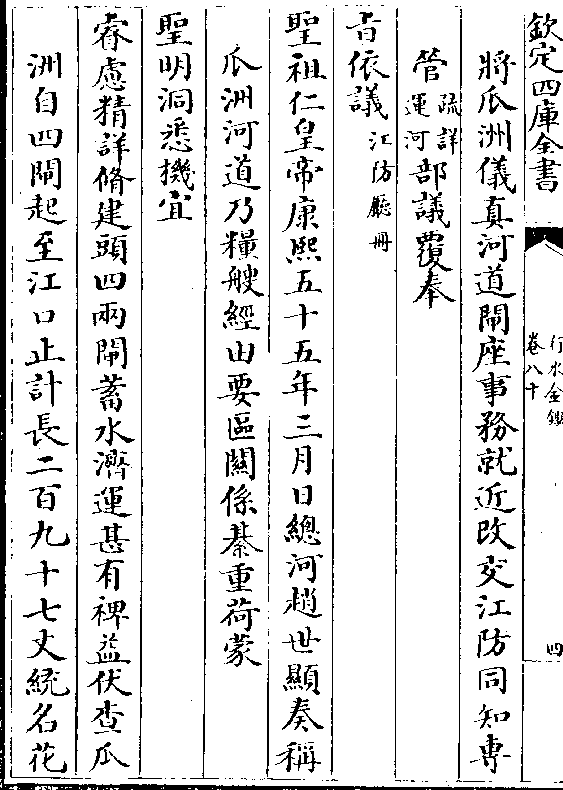 欽定四庫全書
行水金鑑
卷八十
四
將瓜洲儀真河道閘座事務就近改交江防同知專
管疏詳運河部議覆奉
旨依議江防廳冊
聖祖仁皇帝康熙五十五年三月日總河趙世顯奏稱
瓜洲河道乃糧艘經由要區關係綦重荷蒙
聖明洞悉機宜
睿慮精詳脩建頭四兩閘蓄水濟運甚有裨益伏查瓜
洲自四閘起至江口止計長二百九十七丈統名花